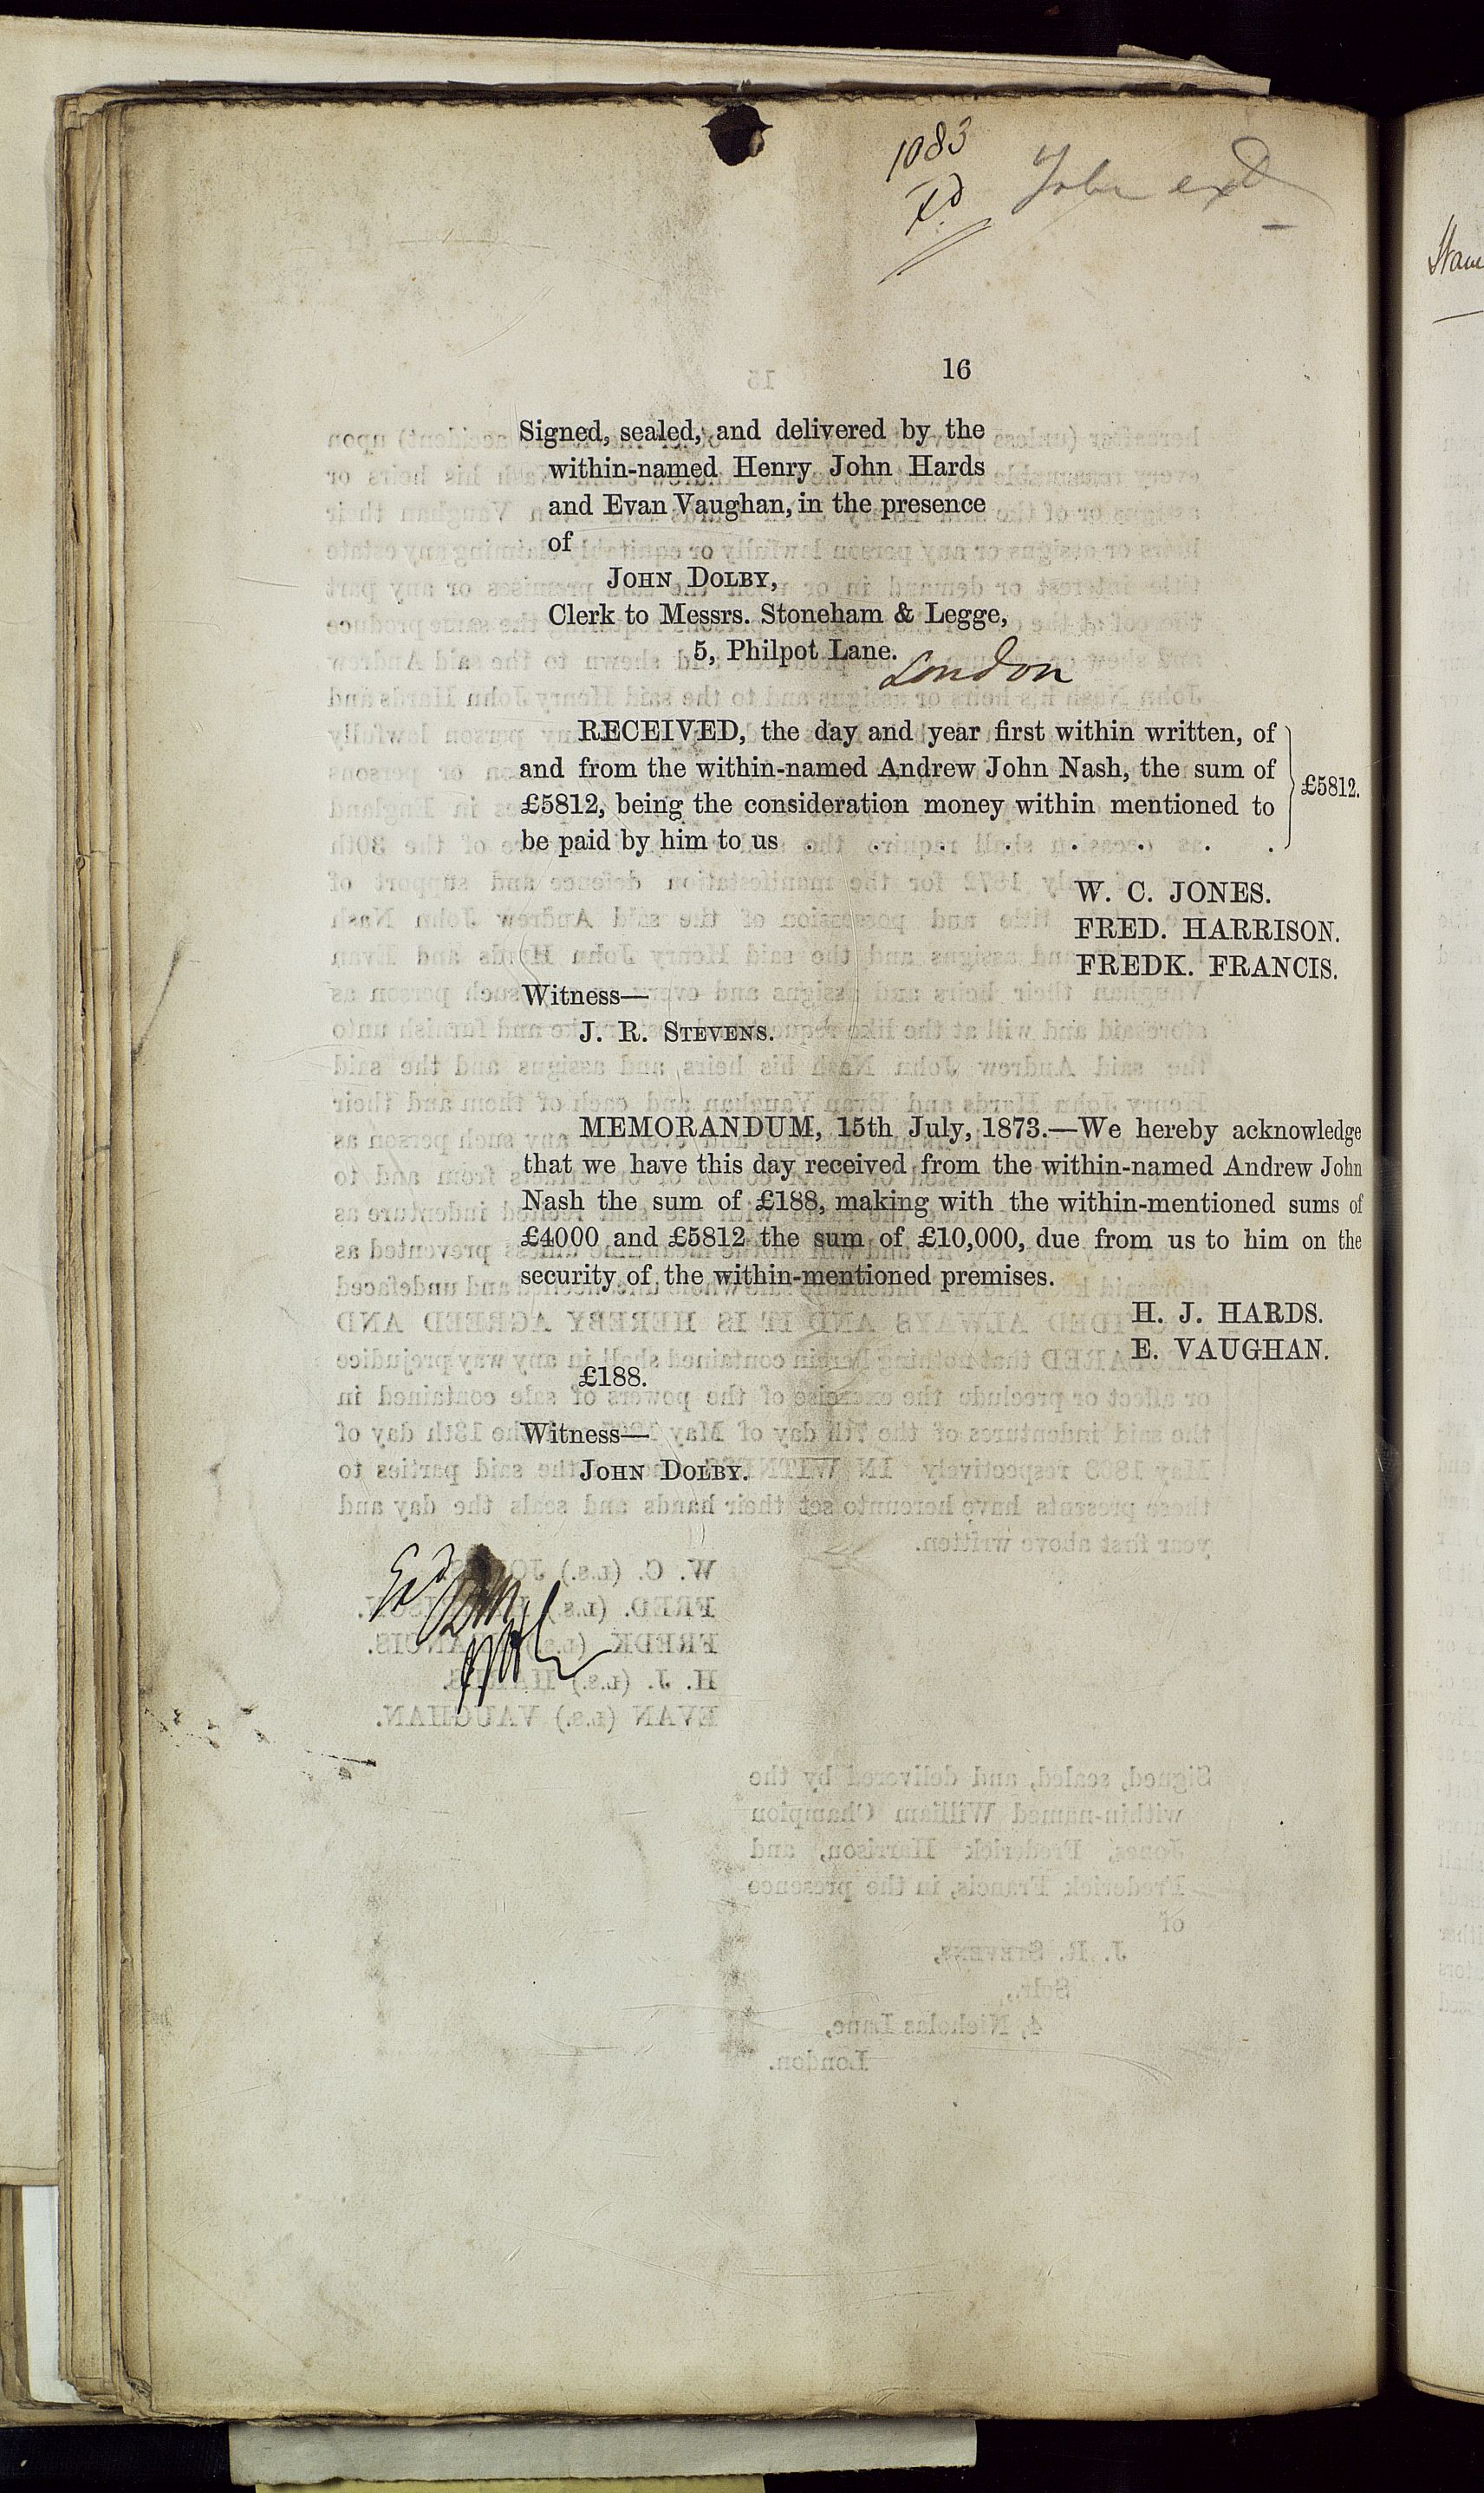 1083
fd
16
Signed, sealed, and delivered by the
within-named Henry John Hards
and Evan Vaughan, in the presence
of
JOHN DOLBY,
Clerk to Messrs. Stoneham & Legge,
5, Philpot Lane.
London
RECEIVED, the day and year first within written, of
and from the within-named Andrew John Nash, the sum of
£5812, being the consideration money within mentioned to
be paid by him to us . . . . . . . .
£5812.
W. C. JONES.
FRED. HARRISON.
FREDK. FRANCIS.
Witness—
J. R. STEVENS.
MEMORANDUM, 15th July, 1873.—We hereby acknowledge
that we have this day received from the within-named Andrew John
Nash the sum of £188, making with the within-mentioned sums of
£4000 and £5812 the sum of £10,000, due from us to him on the
security of the within-mentioned premises.
H. J. HARDS.
E. VAUGHAN.
£188.
Witness—
JOHN DOLBY.